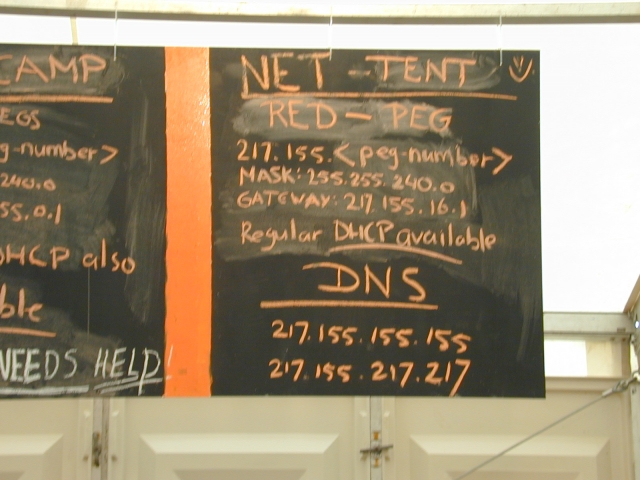 CAMP
EGS
g-number>
240.0
55.0.1
DHCP also
ble
NEEDS HELP!
NET-TENT
RED-PEG
217.155.<peg-number>
MASK: 255.255.240.0
GATEWAY: 217.155.16.1
Regular DHCP available
DNS
217.155.155.155
217.155.217.217